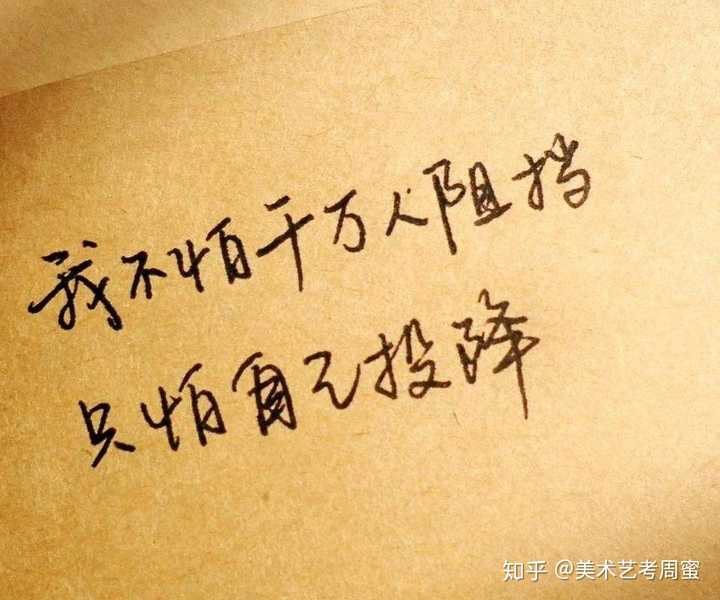 我不怕千万人阻挡
只怕自己投降
知乎 @美术艺考周蜜